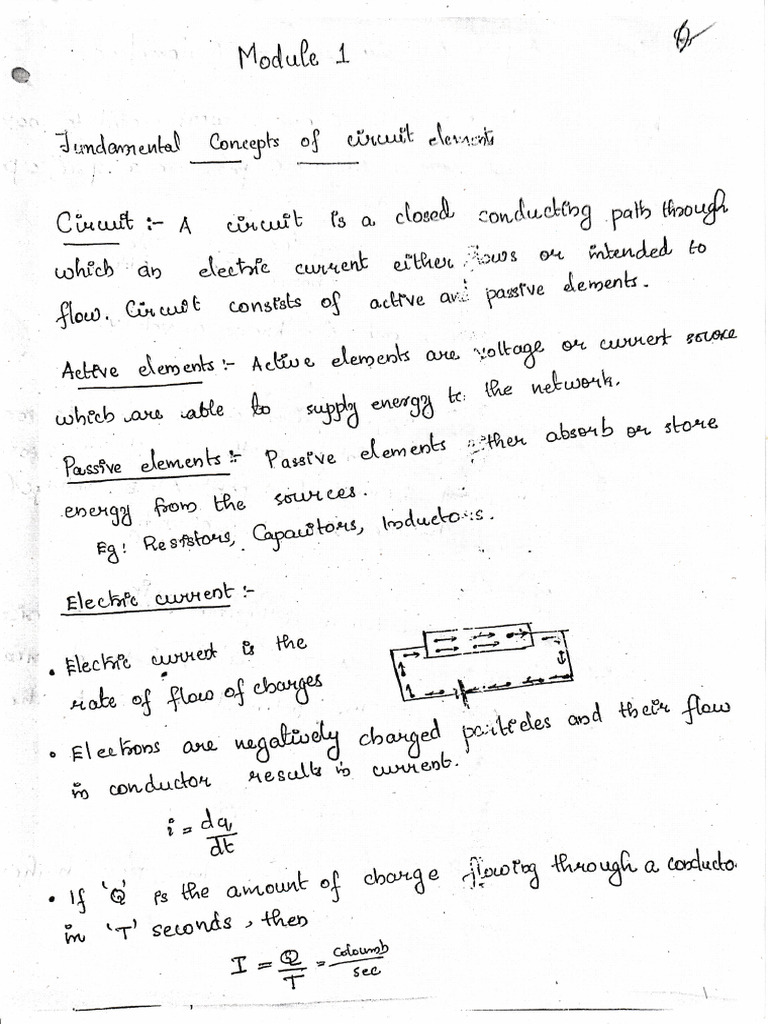 Module 1
Fundamental Concepts of circuit elements
Circuit :- A circuit is a closed conducting path through
which an electric current either flows or intended to
flow. Circuit consists of active and passive elements.
Active elements :- Active elements are voltage or current source
which are able to supply energy to the network.
Passive elements :- Passive elements either absorb or store
energy from the sources.
Eg: Resistors, Capacitors, Inductors.
Electric current :-
• Electric current is the
rate of flow of charges
• Electrons are negatively charged particles and their flow
in conductor results in current.
i = dq/dt
• If 'Q' is the amount of charge flowing through a conducto
in 'T' seconds, then
I = Q/T = Coloumb/sec